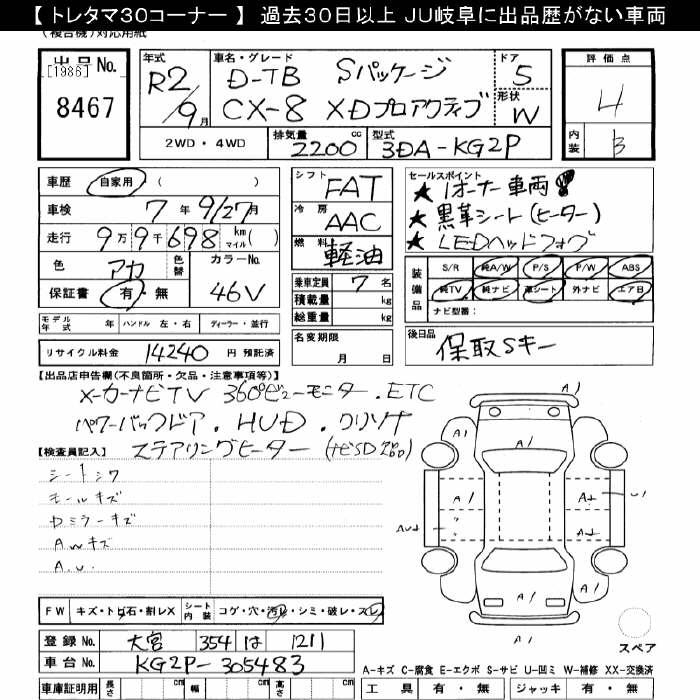 【 トレタマ30コーナー 】 過去30日以上 JU岐阜に出品歴がない車両
(複合機)対応用紙
出品No. [1986] 8467
年式 R2/9月
車名・グレード D-TB Sパッケージ
CX-8 XDプロアクティブ
ドア 5
形状 W
評価点 4
内装 B
2WD・4WD 排気量 2200 cc 型式 3DA-KG2P
車歴 自家用 ( )
車検 7年 9/27月
走行 9万9千698 km マイル( )
色 アカ 色替 カラーNo. 46V
保証書 有・無
シフト FAT
冷房 AAC
燃料 軽油
乗車定員 7 名
積載量 kg
総重量 kg
名変期限 月 日
セールスポイント
★ 1オーナー車両!
★ 黒革シート(ヒーター)
★ LEDヘッドフォグ
装備品 S/R 純A/W P/S P/W ABS
純TV 純ナビ 革シート 外ナビ エアB
ナビ型番:
モデル年式 年 ハンドル 左・右 ディーラー・並行
リサイクル料金 14240 円 預託済
後日品 保取Sキー
【出品店申告欄(不良箇所・欠品・注意事項等)】
メーカーナビTV 360°ビューモニター.ETC
パワーバックドア.HUD.クリソナ
ステアリングヒーター (ナビSD200)
【検査員記入】
シートシワ
モールキズ
Dミラーキズ
AWキズ
A.U.
A1
A1
A1
A1
A1
A1
A1
A1
U1
FW キズ・トビ石・割レX シート内装 コゲ・穴・汚レ・シミ・破レ・スレ
登録No. 大宮 354 は 1211
車台No. KG2P-305483
スペア
A-キズ C-腐食 E-エクボ S-サビ U-凹ミ W-補修 XX-交換済
車庫証明用 長さ cm 幅 cm 高さ cm
工具 有・無 ジャッキ 有・無